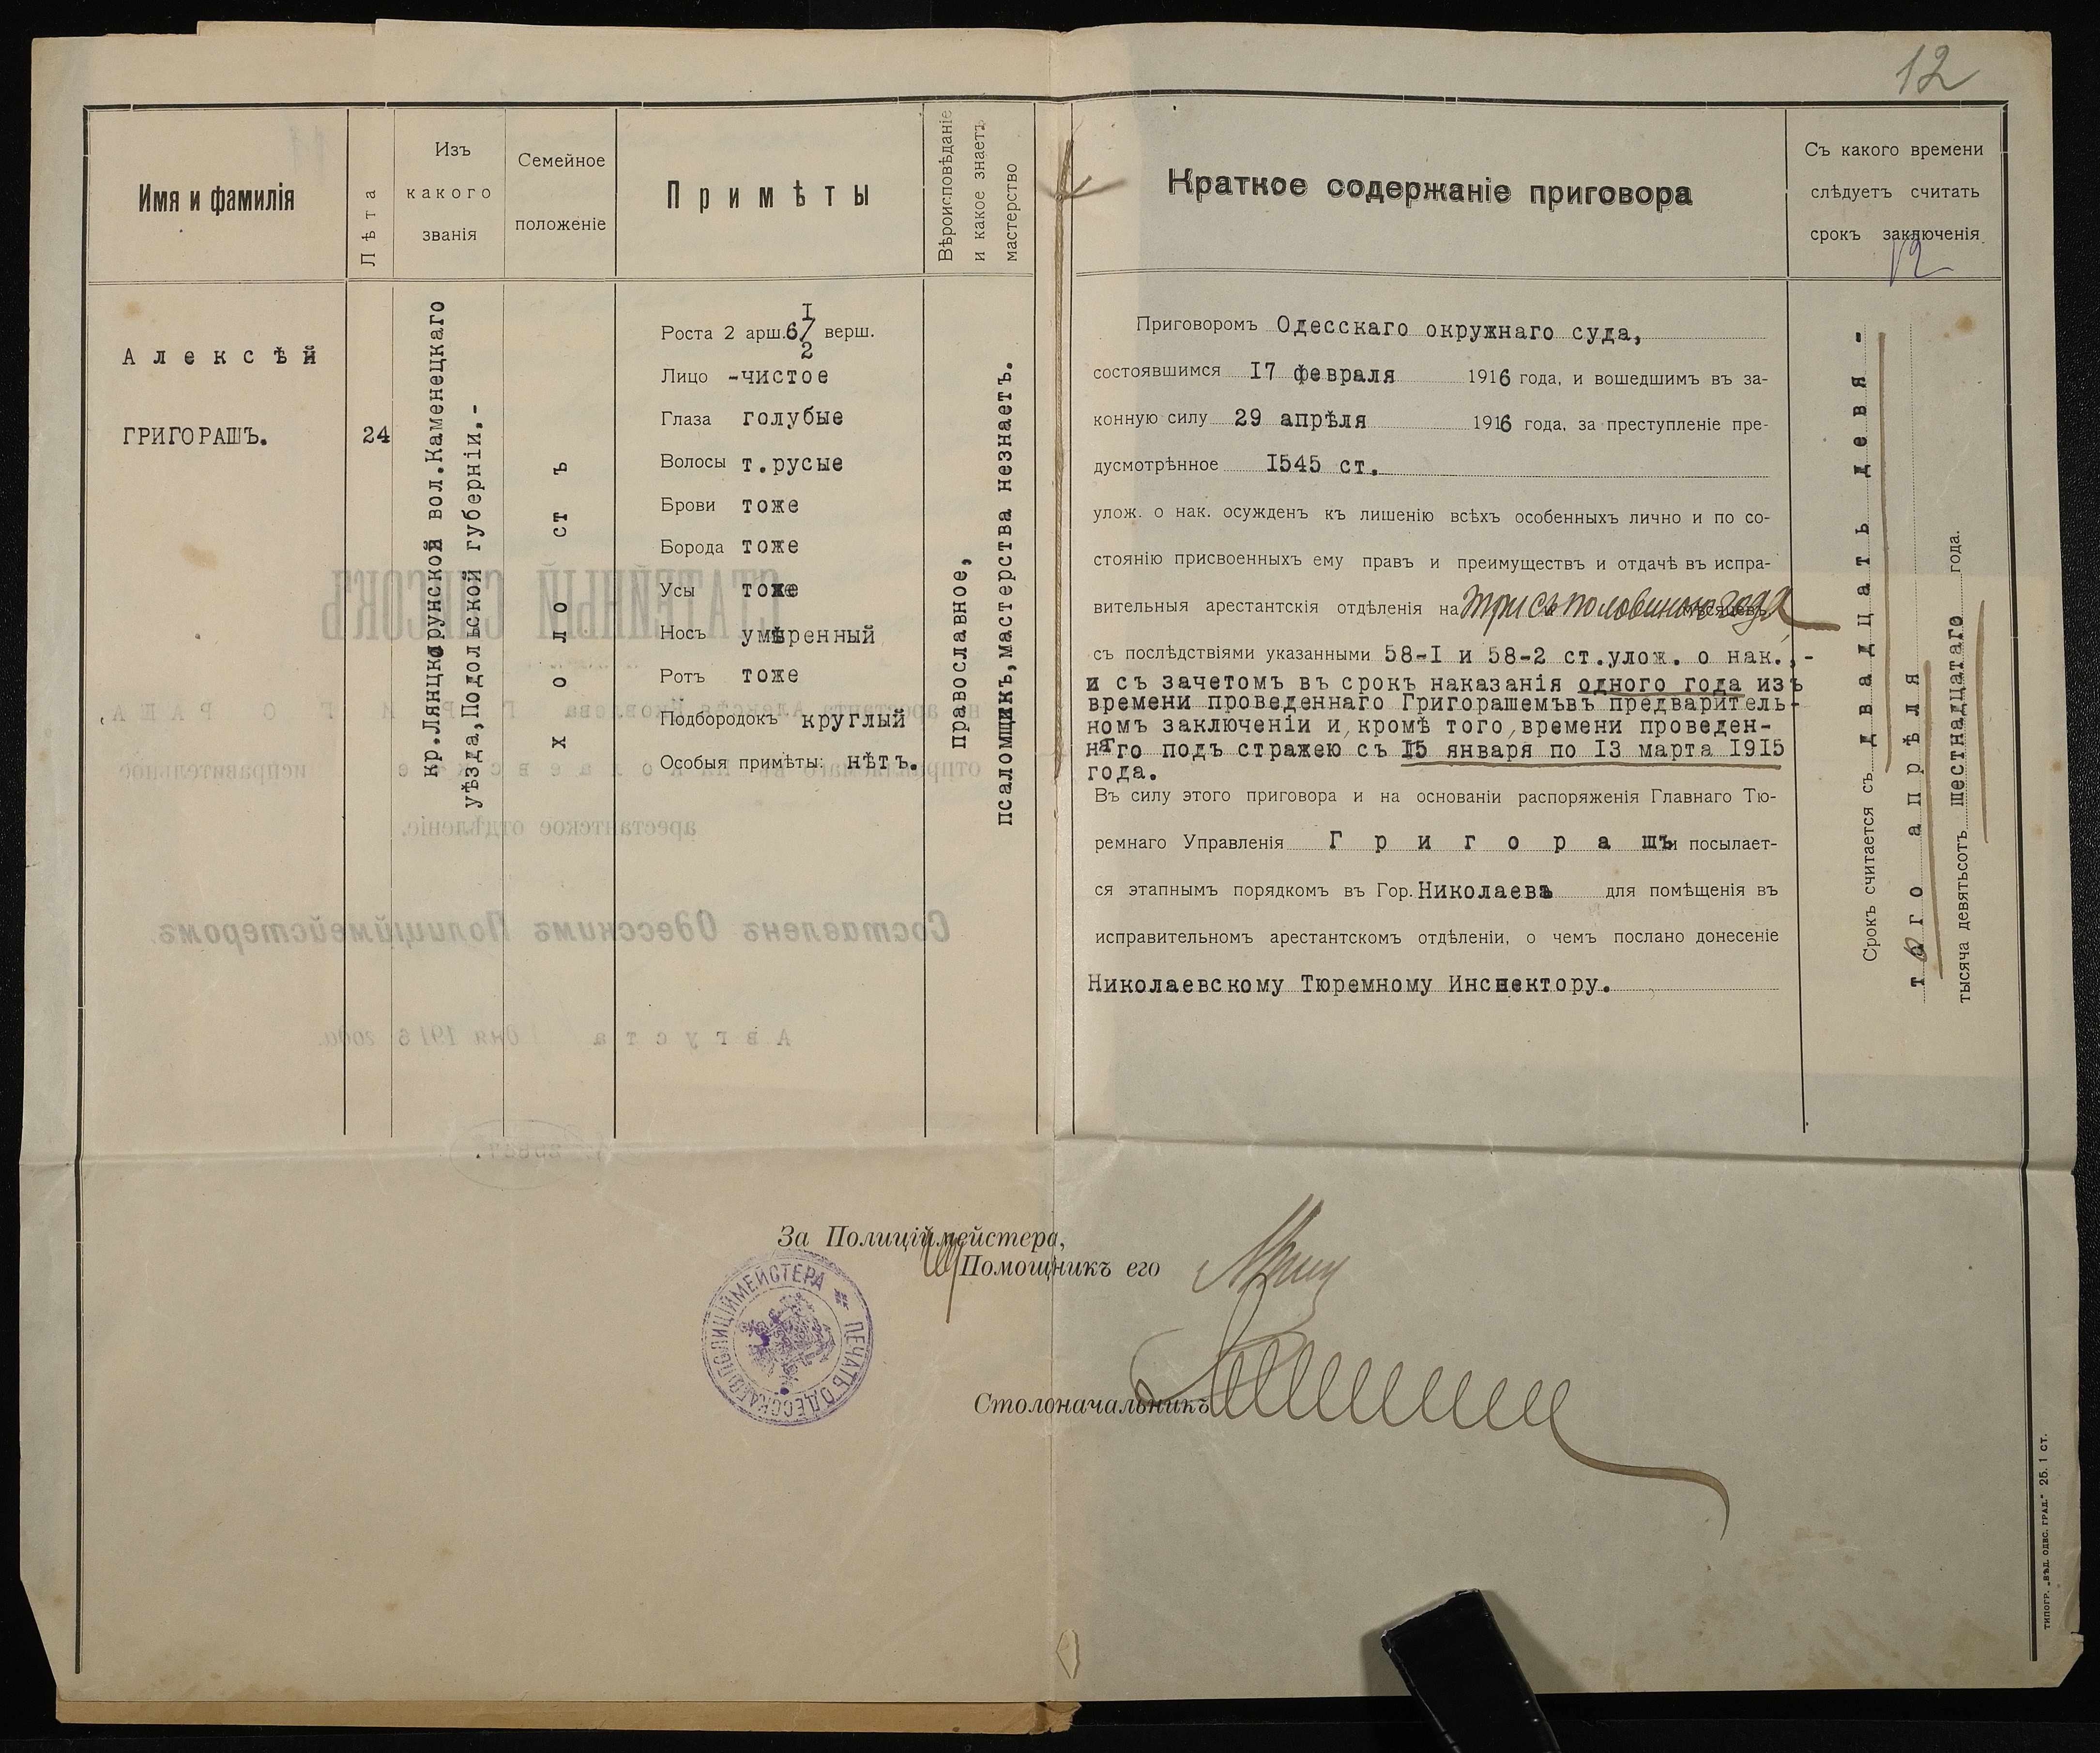 12
Имя и фамилія
Лѣта
Изъ
какого
званія
Семейное
положеніе
Примѣты
Вѣроисповѣданіе
и какое знаетъ
мастерство
Краткое содержаніе приговора
Съ какого времени
слѣдуетъ считать
срокъ заключенія
12
Алексѣй
ГРИГОРАШЪ.
24
кр. Лянцкорунской вол. Каменецкаго
уѣзда, Подольской губерніи.-
холостъ
Роста 2 арш. 6 1/2 верш.
Лицо -чистое
Глаза голубые
Волосы т.русые
Брови тоже
Борода тоже
Усы тоже
Носъ умѣренный
Ротъ тоже
Подбородокъ круглый
Особыя примѣты: нѣтъ.
православное,
псаломщикъ, мастерства незнаетъ.
Приговоромъ Одесскаго окружнаго суда,
состоявшимся 17 февраля 1916 года, и вошедшимъ въ за-
конную силу 29 апрѣля 1916 года, за преступленіе пре-
дусмотрѣнное 1545 ст.
улож. о нак. осужденъ къ лишенію всѣхъ особенныхъ лично и по со-
стоянію присвоенныхъ ему правъ и преимуществъ и отдачѣ въ испра-
вительныя арестантскія отдѣленія на три съ половиною года
съ послѣдствіями указанными 58-1 и 58-2 ст.улож. о нак.,-
и съ зачетомъ въ срокъ наказанія одного года изъ
времени проведеннаго Григорашемъвъ предваритель-
номъ заключеніи и, кромѣ того, времени проведен-
наго подъ стражею съ 15 января по 13 марта 1915
года.
Въ силу этого приговора и на основаніи распоряженія Главнаго Тю-
ремнаго Управленія Григорашъ и посылает-
ся этапнымъ порядкомъ въ Гор. Николаевъ для помѣщенія въ
исправительномъ арестантскомъ отдѣленіи, о чемъ послано донесеніе
Николаевскому Тюремному Инспектору.
Срокъ считается съ двадцать девя-
того апрѣля
тысяча девятьсотъ шестнадцатаго года.
За Полиціймейстера,
Помощникъ его
ПЕЧАТЬ ОДЕССКАГО ПОЛИЦІЙМЕЙСТЕРА
Столоначальникъ
ТИПОГР. „ВѢД. ОДЕС. ГРАД." 25. 1 СТ.